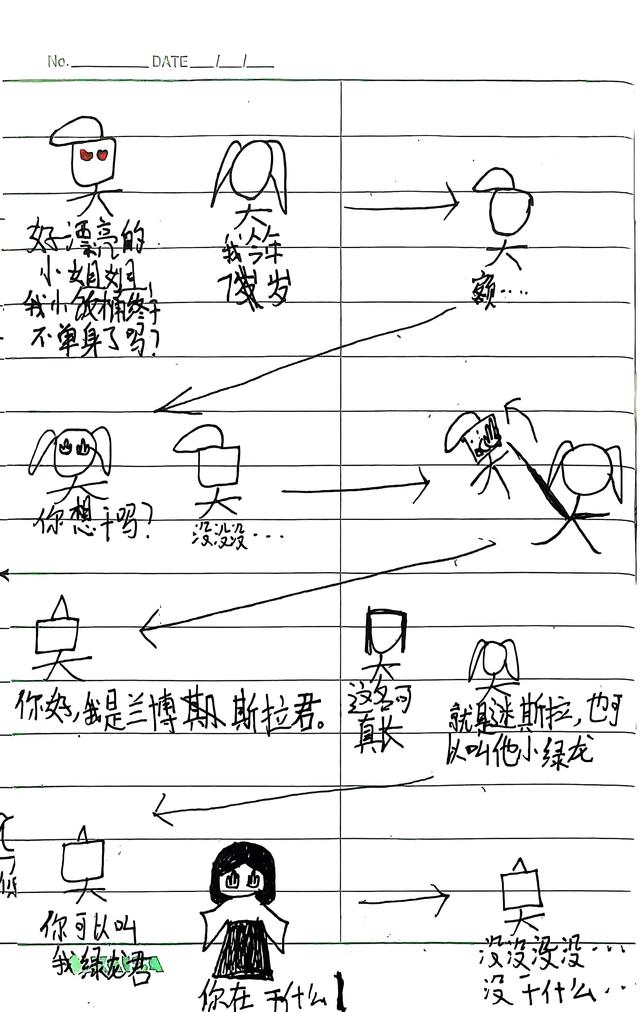 No. DATE / /
好漂亮的
小姐姐,
我小饭桶终于
不单身了吗?
我今年
7岁
额...
你想干吗?
没没没...
你好,我是兰博斯斯拉君。
这名可
真长
就是迷斯拉,也可
以叫他小绿龙
你可以叫
我绿龙君
你在干什么
没没没没...
没干什么...